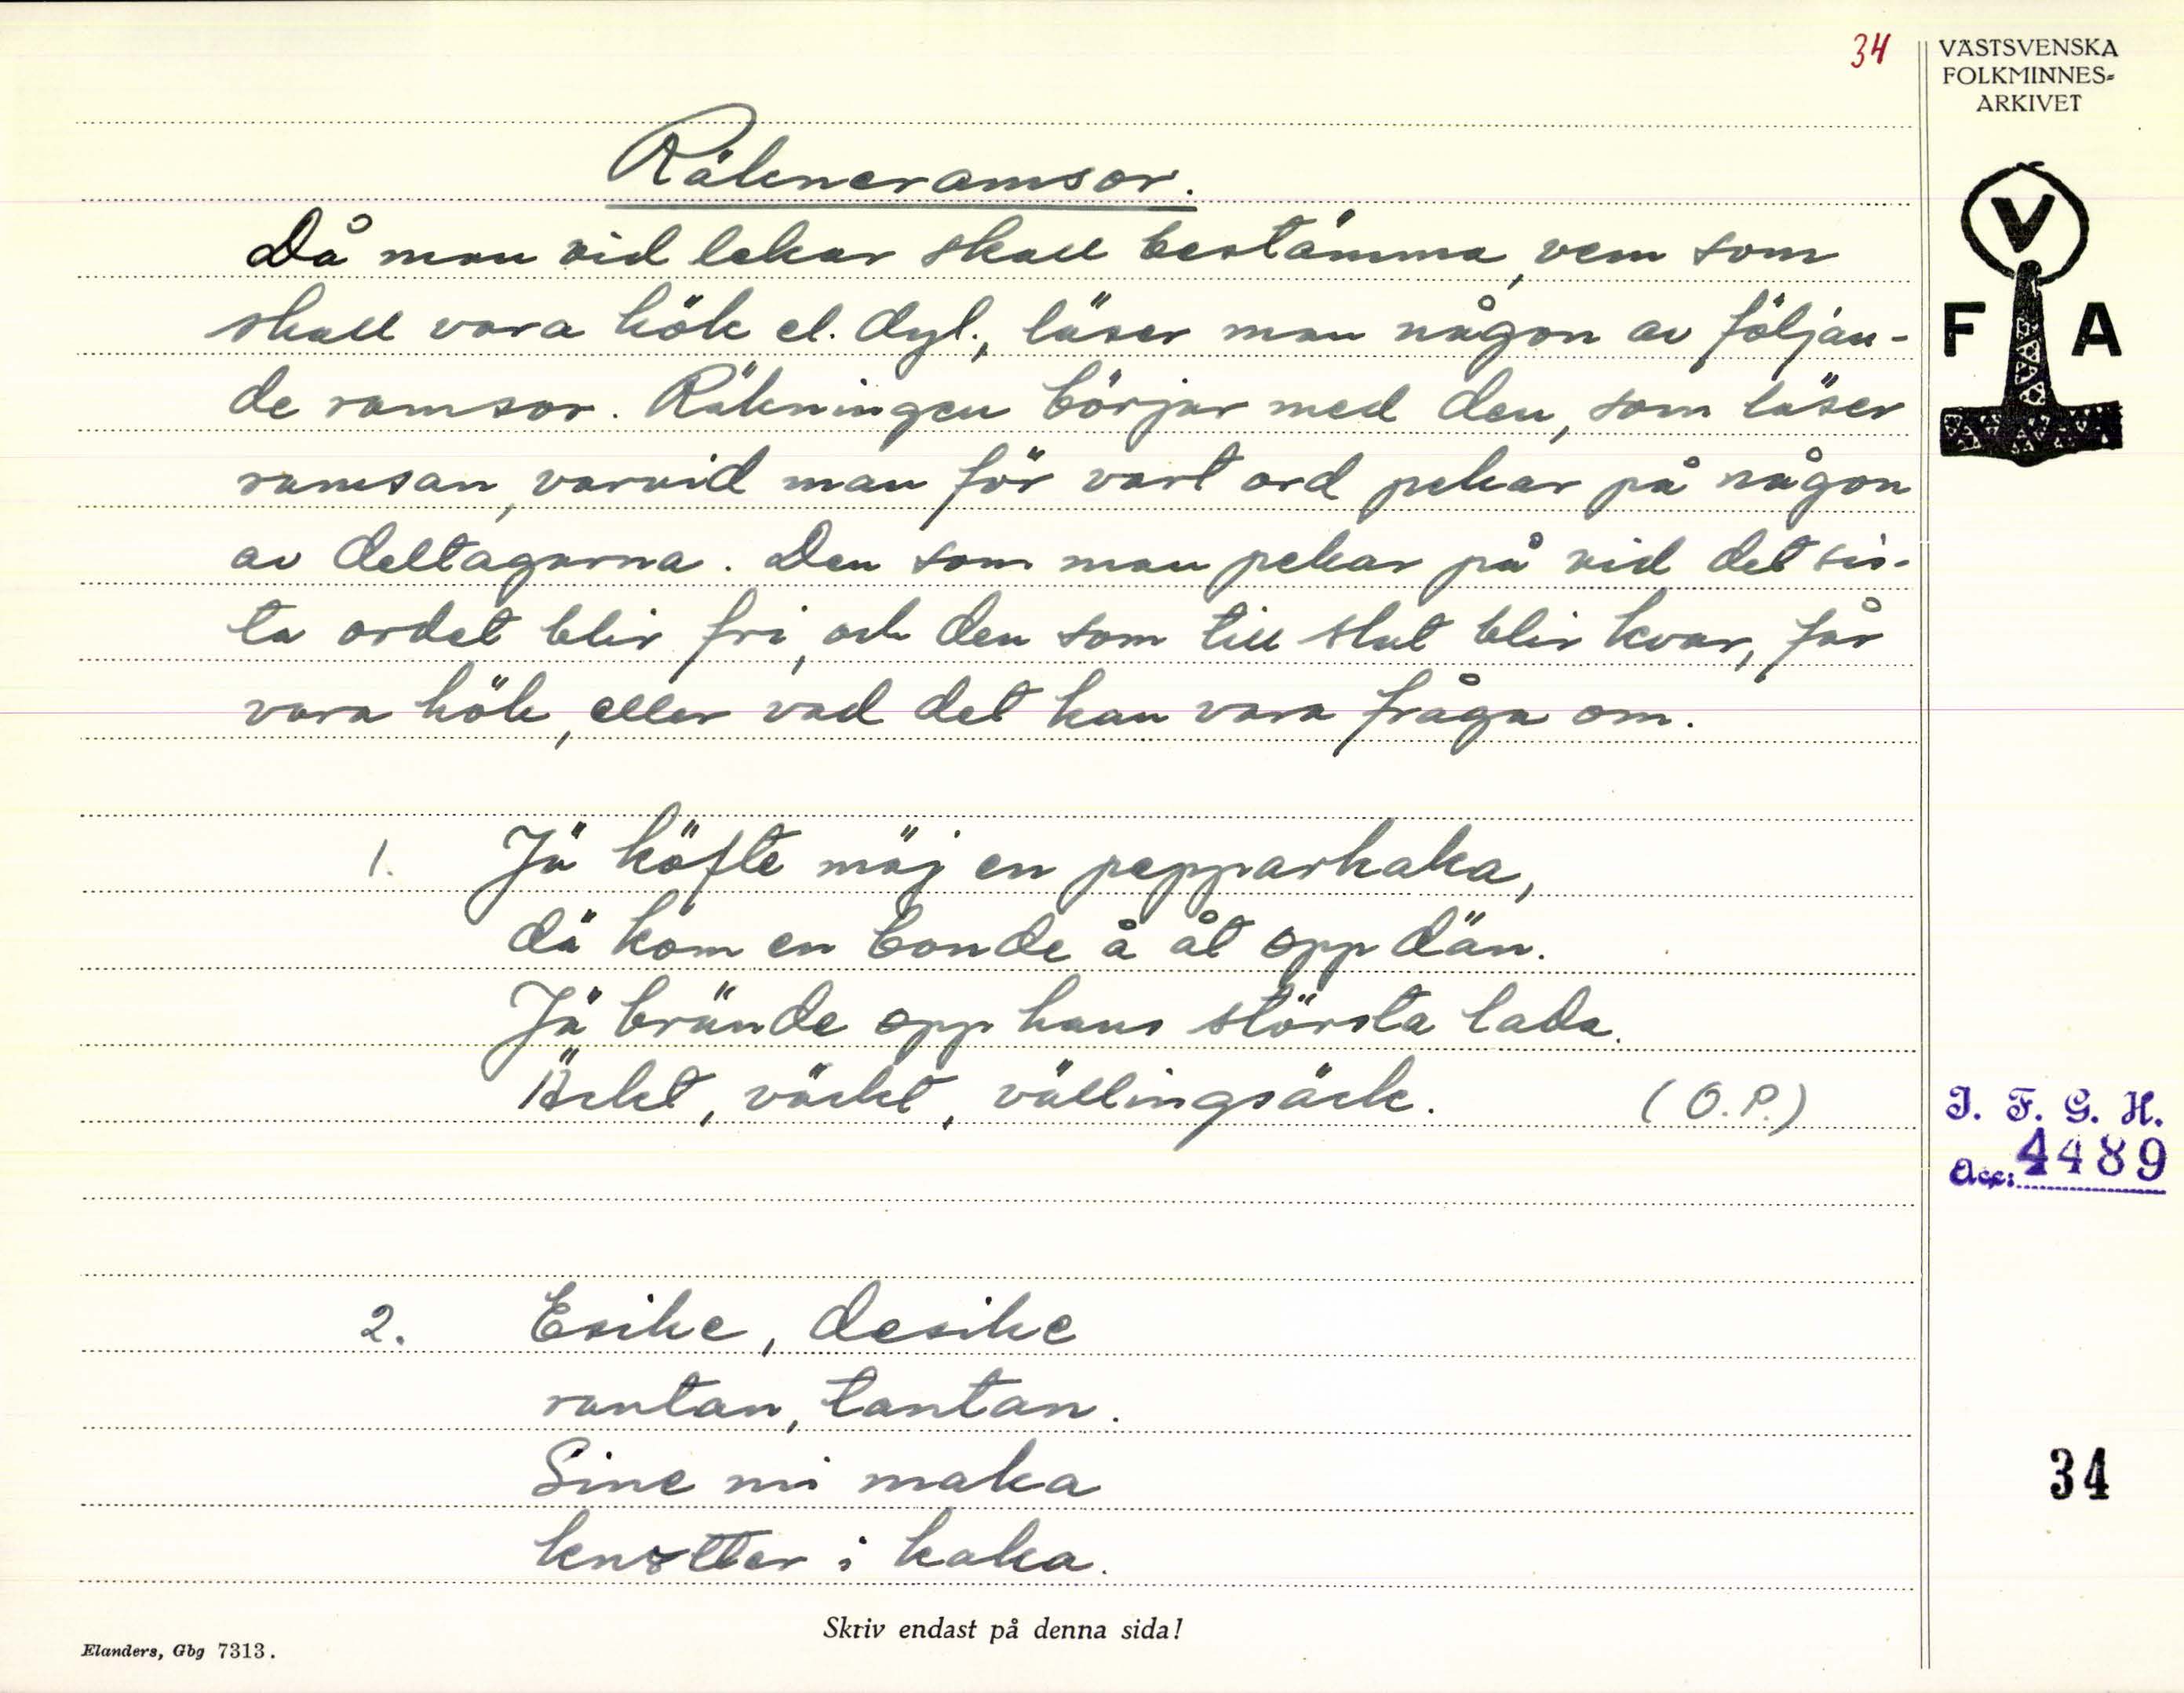 34
VÄSTSVENSKA
FOLKMINNES-
ARKIVET
Räkneramsor.
Då man vid lekar skall bestämma, vem som
skall vara hök el. dyl., läser man någon av följan-
de ramsor. Räkningen börjar med den, som läser
ramsan, varvid man för vart ord pekar på någon
av deltagarna. Den som man pekar på vid det sis-
ta ordet blir fri, och den som till slut blir kvar, får
vara hök, eller vad det kan vara fråga om.
V
F A
1. Jä köfte mäj en pepparkaka,
dä kom en bonde å åt opp dän.
Jä brände opp hans största lada.
Äckt, väckt, vällingsäck. (O.P.)
I. F. G. H.
Acc: 4489
2. Esike, desike
rantan, tantan.
Sine mi maka
knotter i kaka.
34
Skriv endast på denna sida!
Elanders, Gbg 7313.